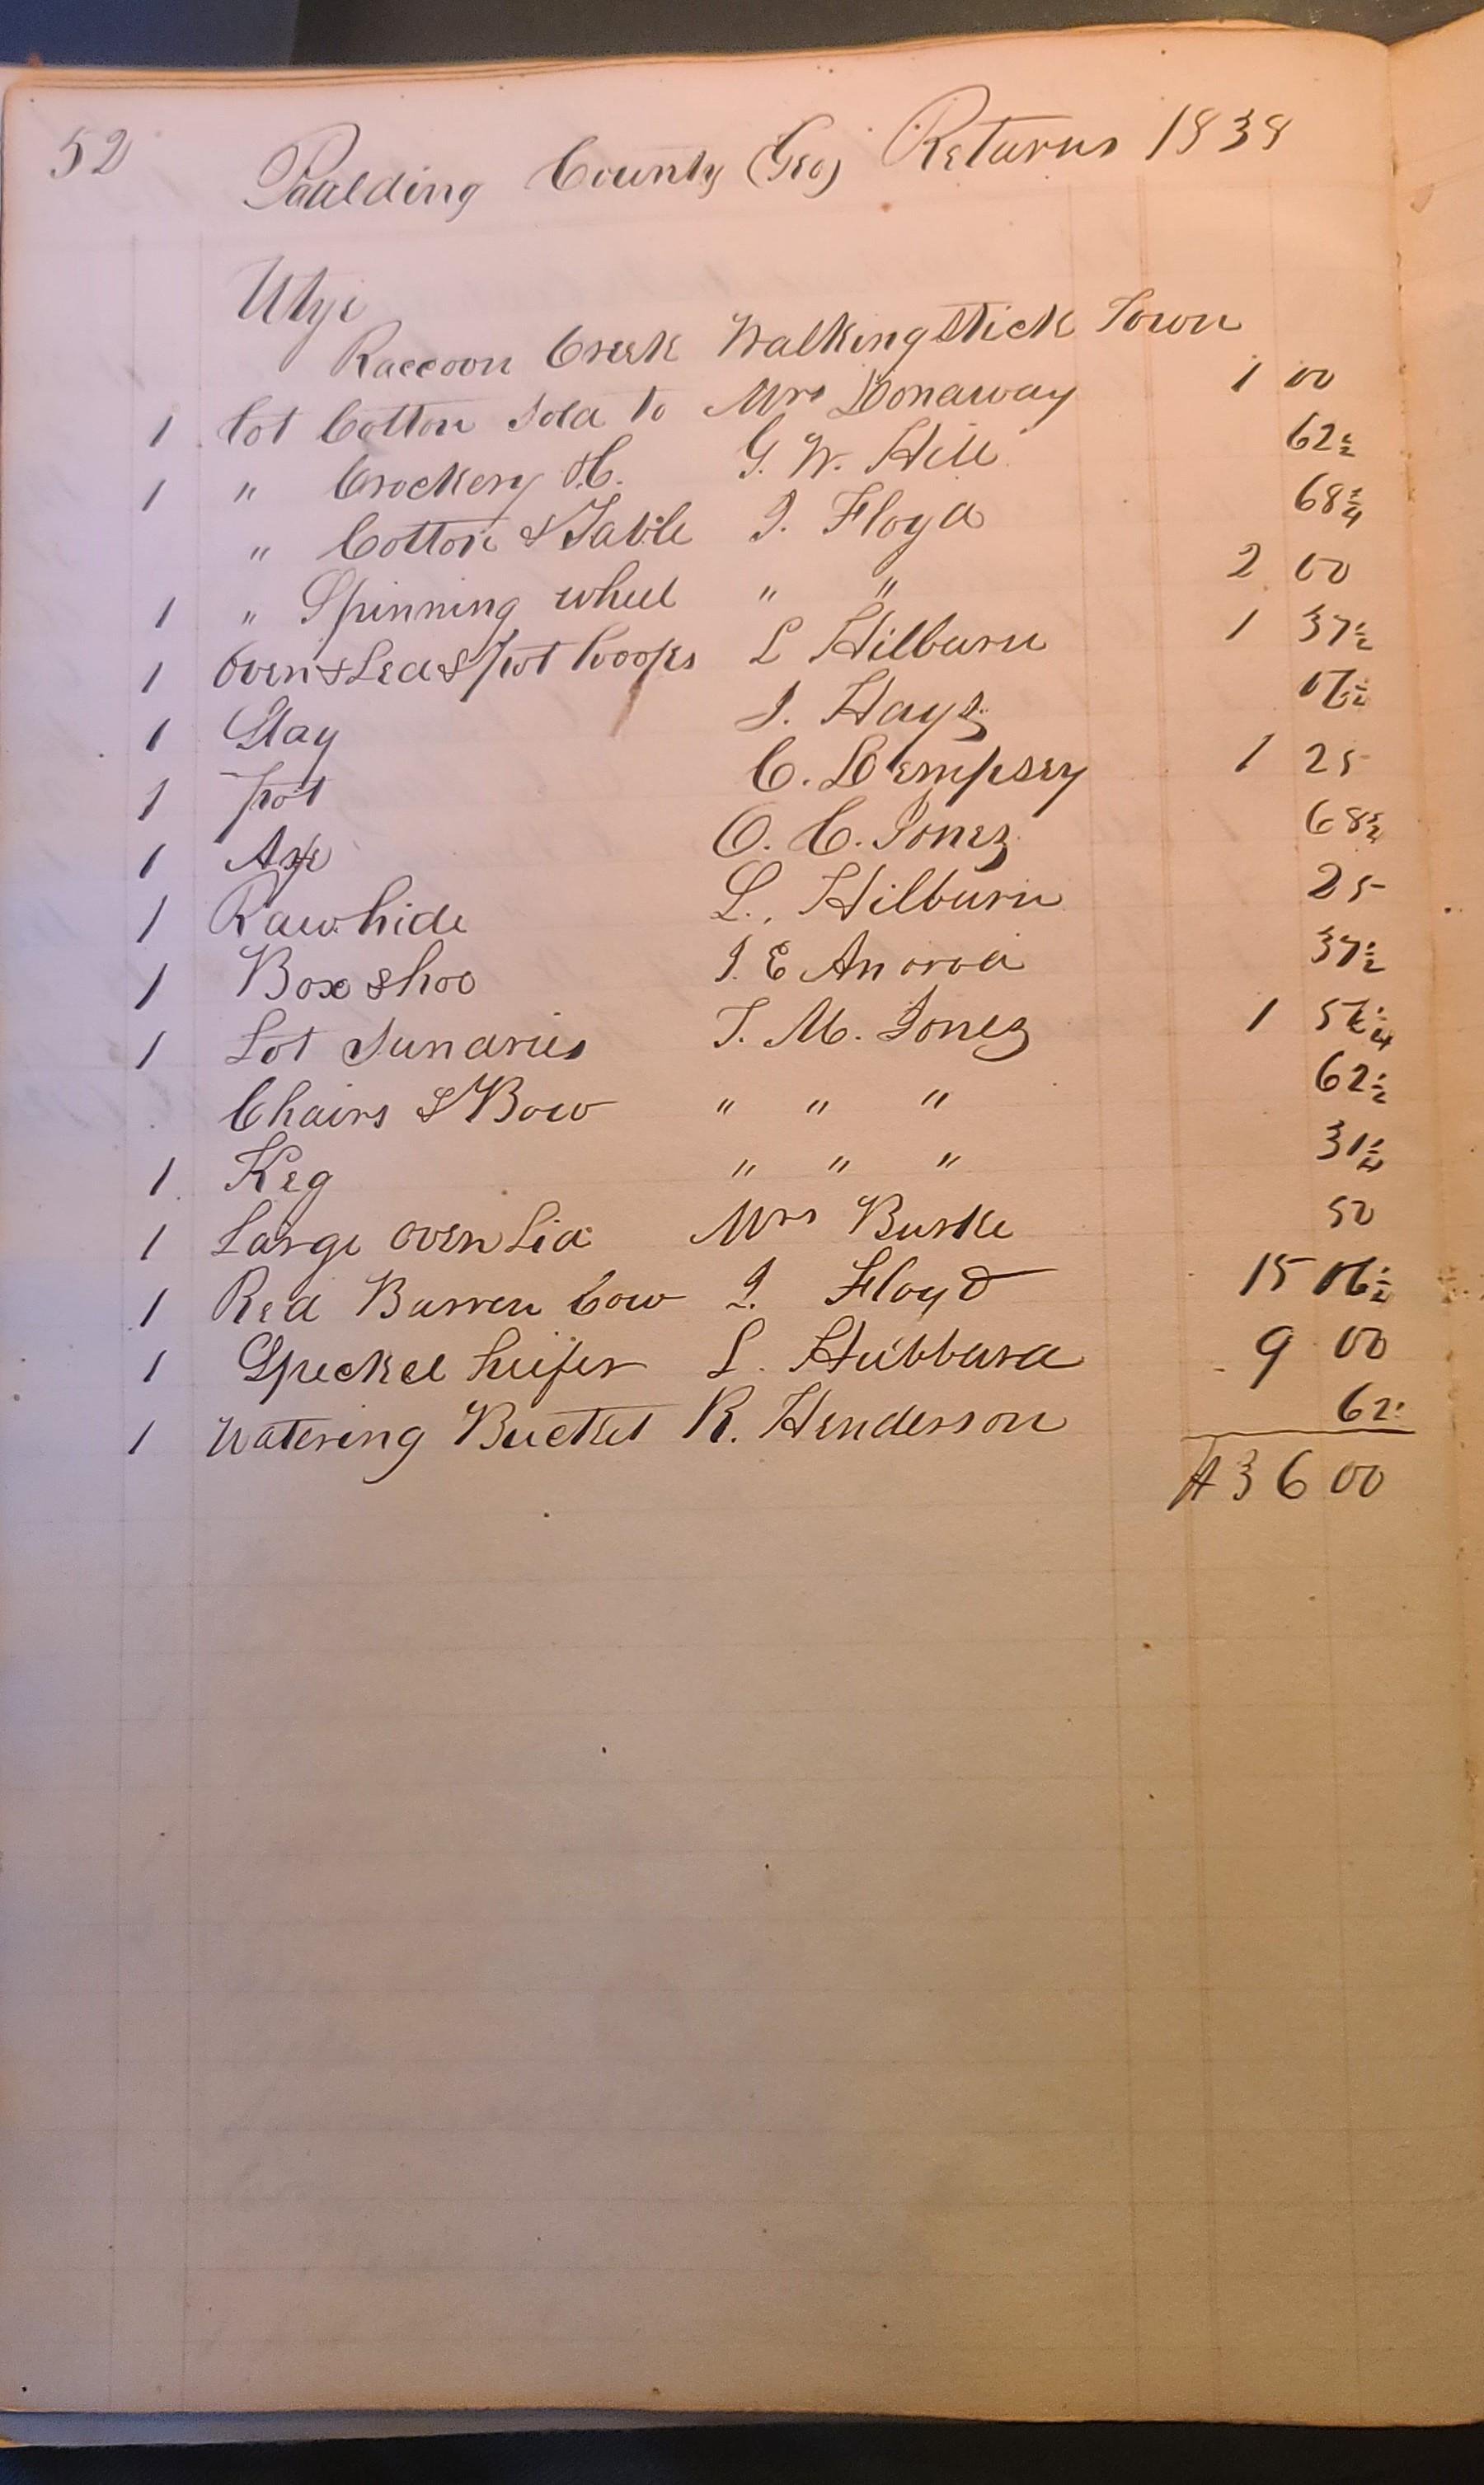 52 Paulding County (Geo) Returns 1838
Utye
Raccoon Creek Walkingstick Town
1 Lot Cotton sold to Mrs Donaway 1 00
1 " Crockery &C. G. W. Hill 62 1/2
" Cotton & Table J. Floyd 68 3/4
1 " Spinning wheel " " 2 00
1 Oven & Led & pot hooks L Hilburn 1 37 1/2
1 Slay J. Hayz
1 pot C. Dempsey 1 25
1 Axe O. C. Jonez 68 3/4
1 Rawhide L. Hilburn 25
1 Box & hoo J. E 37 1/2
1 Lot Sundries T. M. Jonez 1
Chairs & Bow " " " 62 1/2
1 Keg " " " 31 1/4
1 Large oven Lid Mrs Burke 50
1 Red Barren Cow J. Floyd 15
1 Speckel heifer L. Hubbard 9 00
1 Watering Bucket R. Henderson 62
$36 00